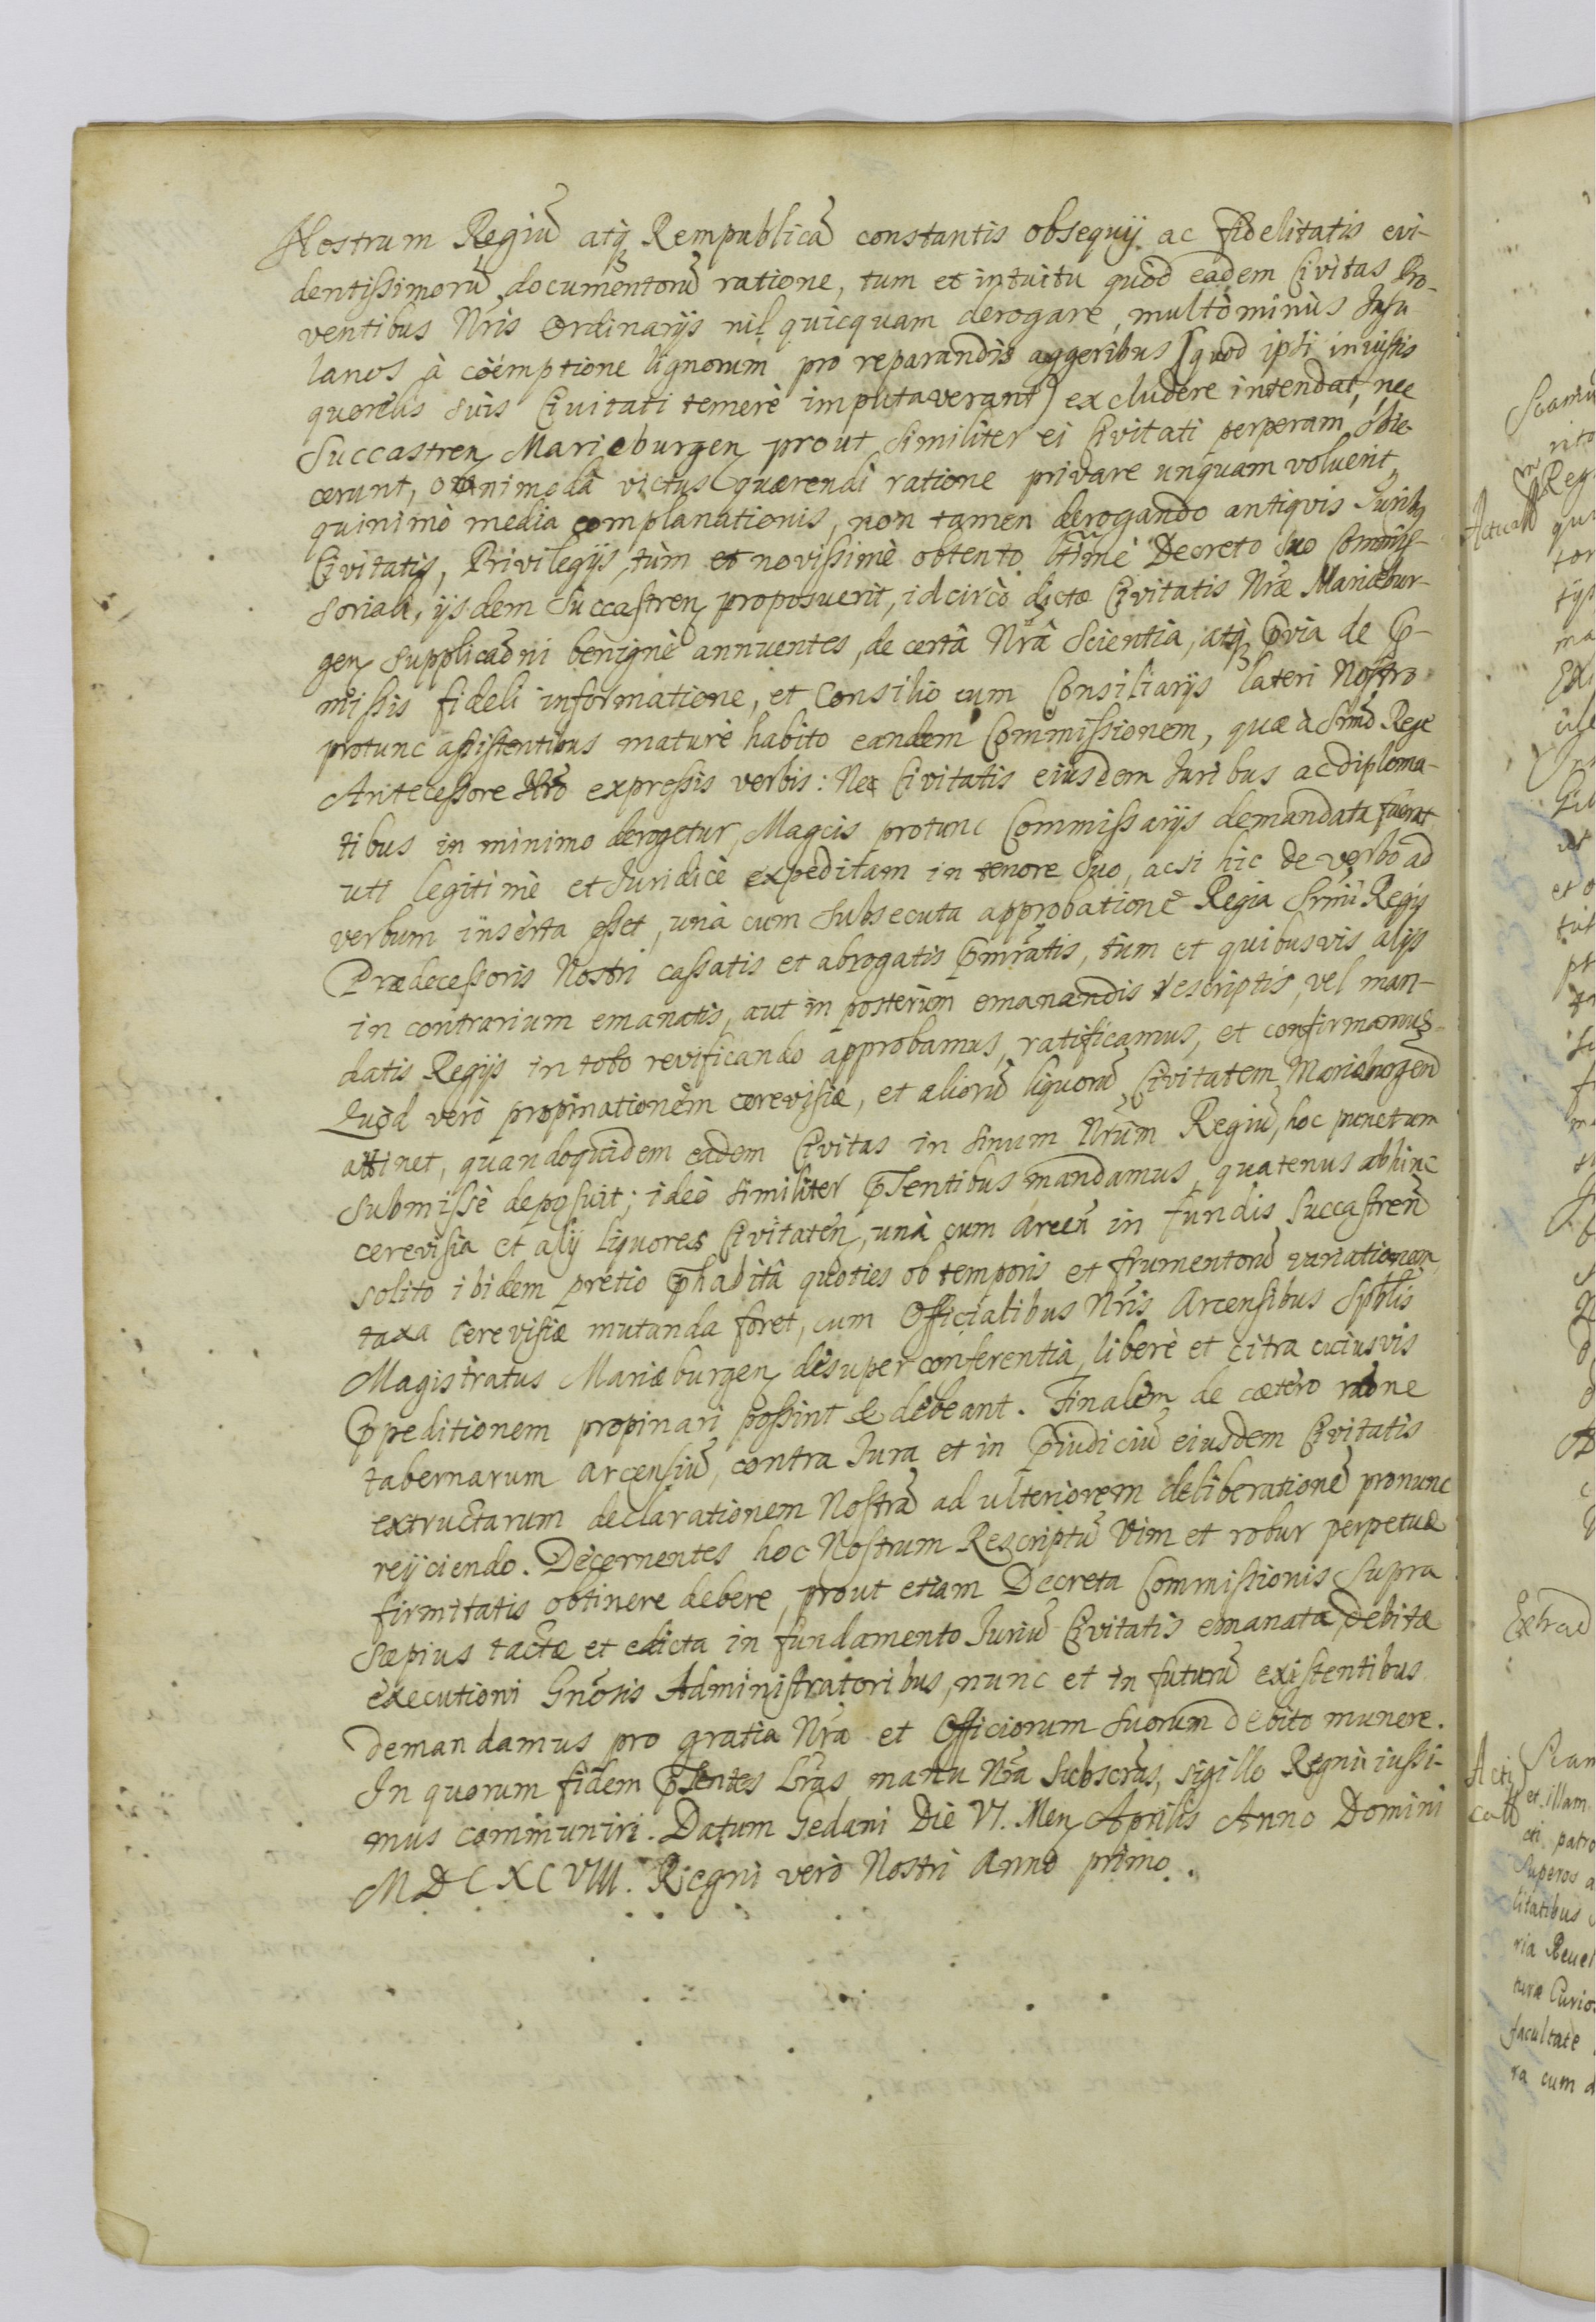 Nostrum Regiū atq Rempublicā constantis obsequij ac fidelitatis evi-
dentissimorū documentorū ratione, tum et intuitu quòd eadem Civitas Pro-
ventibus Nr̃is Ordinarijs nil quicquam derogare, multò minùs Insu-
lanos à coëmptione lignorum pro reparandis aggeribus (quod ipsi iniustis
querelis suis Civitati temerè imputaverant) excludere intendat, nec
Succastren Mariæburgen prout similiter ei Civitati perperam obie-
cerunt, omnimodâ victus quærendi ratione privare unquam voluerit,
quinimò media complanationis, non tamen derogando antiqvis Juribq
Civitatis, Privilegijs, tùm et novissimè obtento ltimè Decreto suo Commis-
soriali, ijsdem Succastren proposuerit, idcircò dictæ Civitatis Nr̃æ Mariæbur-
gen supplicaõni benignè annuentes, de certâ Nr̃â Scientia, atq p̃via de p̃-
missis fideli informatione, et Consilio cum Consiliarijs lateri Nostro
protunc assistentibus maturè habito eandem Commissionem, quæ à Smõ Rege
Antecessore Nr̃o expressis verbis: Ne Civitatis eiusdem Juribus ac diploma-
tibus in minimo derogetur, Magcis protunc Commissarijs demandata fuerat
uti legitimè et Juridicè expeditam in tenore suo, acsi hic de verbo ad
verbum inserta esset, unà cum subsecuta approbatione Regia Srmi Regis
Prædecessoris Nostri cassatis et abrogatis p̃mr̃atis, tùm et quibusvis alijs
in contrarium emanatis, aut in posterùm emanandis rescriptis, vel man-
datis Regijs in toto revificando approbamus, ratificamus, et confirmamus.
Quòd verò propinationem cerevisiæ, et aliorū liquorū Civitatem Mariæbugen̄
attinet, quandoquidem eadem Civitas in sinum Nr̃um Regiū, hoc punctum
submissè deposuit; ideò similiter p̃sentibus mandamus, quatenus abhinc
cerevisia et alij liquores Civitaten, unà cum arcen̄ in fundis Succastren̄
solito ibidem pretio p̃habitâ quoties ob temporis et frumentorū variationem,
taxa Cerevisiæ mutanda foret, cum Officialibus Nr̃is Arcensibus Spblis
Magistratus Mariæburgen desuper conferentia, liberè et citra cuiusvis
p̃peditionem propinari possint et debeant. Finalem de cætero raõne
tabernarum arcensiū, contra Jura et in p̃iudiciū eiusdem Civitatis
extructarum declarationem Nostrā ad ulteriorem deliberationē pronunc
reijciendo. Decernentes hoc Nostrum Rescriptū vim et robur perpetuæ
firmitatis obtinere debere, prout etiam Decreta Commissionis supra
sæpius tactæ et edicta in fundamento Juriū Civitatis emanata, debitæ
executioni Gnõris Administratoribus, nunc et in futurū existentibus
demandamus pro gratia Nr̃a et Officiorum suorum debito munere.
In quorum fidem p̃sentes lr̃as manu Nr̃a subscr̃as, sigillo Regni iussi-
mus communiri. Datum Gedani Die VI. Men Aprilis Anno Domini
MDCXCVIII. Regni verò Nostri Anno primo.